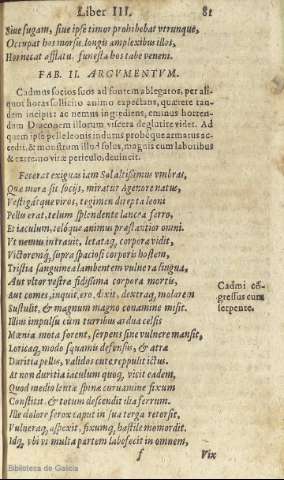 Liber III. 81
Siue fugam, siue ipse timor prohibebat vtrunque,
Occupat hos morsu, longis amplexibus illos,
Hos necat afflatu funesta hos tabe veneni.
FAB. II. ARGVMENTVM.
Cadmus socios suos ad fontem ablegatos, per ali-
quot horas sollicito animo expectans, quærere tan-
dem incipit: ac nemus ingrediens, eminus horren-
dum Draconem illorum viscera deglutire videt. Ad
quem ipse pelle leonis indutus probéque armatus ac-
cedit, & monstrum illud solus, magnis cum laboribus
& extremo vitæ periculo, deuincit.
Fecerat exiguas iam Sol altissimus vmbras,
Quæ mora sit socijs, miratur Agenore natus,
Vestigátque viros, tegimen direpta leoni
Pellis erat, telum splendente lancea ferro,
Et iaculum, telóque animus præstantior omni.
Vt nemus intrauit, letataq́; corpora vidit,
Victoremq́;, supra spatiosi corporis hostem,
Tristia sanguinea lambentem vulnera lingua,
Aut vltor vestræ fidissima corpora mortis,
Aut comes, inquit, ero. Dixit, dextraq́; molarem
Sustulit, & magnum magno conamine misit.
Cadmi cō-
gressus cum
serpente.
Illius impulsu cùm turribus ardua celsis
Mœnia mota forent, serpens sine vulnere mansit,
Loricæq́; modo squamis defensus, & atræ
Duritia pellis, validos cute reppulit ictus.
At non duritia iaculum quoq́; vicit eadem,
Quod medio lentæ spinæ curuamine fixum
Constitit & totum descendit ilia ferrum.
Ille dolore ferox caput in sua terga retorsit,
Vulneraq́; aspexit, fixumq́; hastile momordit.
Idq́; vbi vi multa partem labefecit in omnem,
f Vix
Biblioteca de Galicia